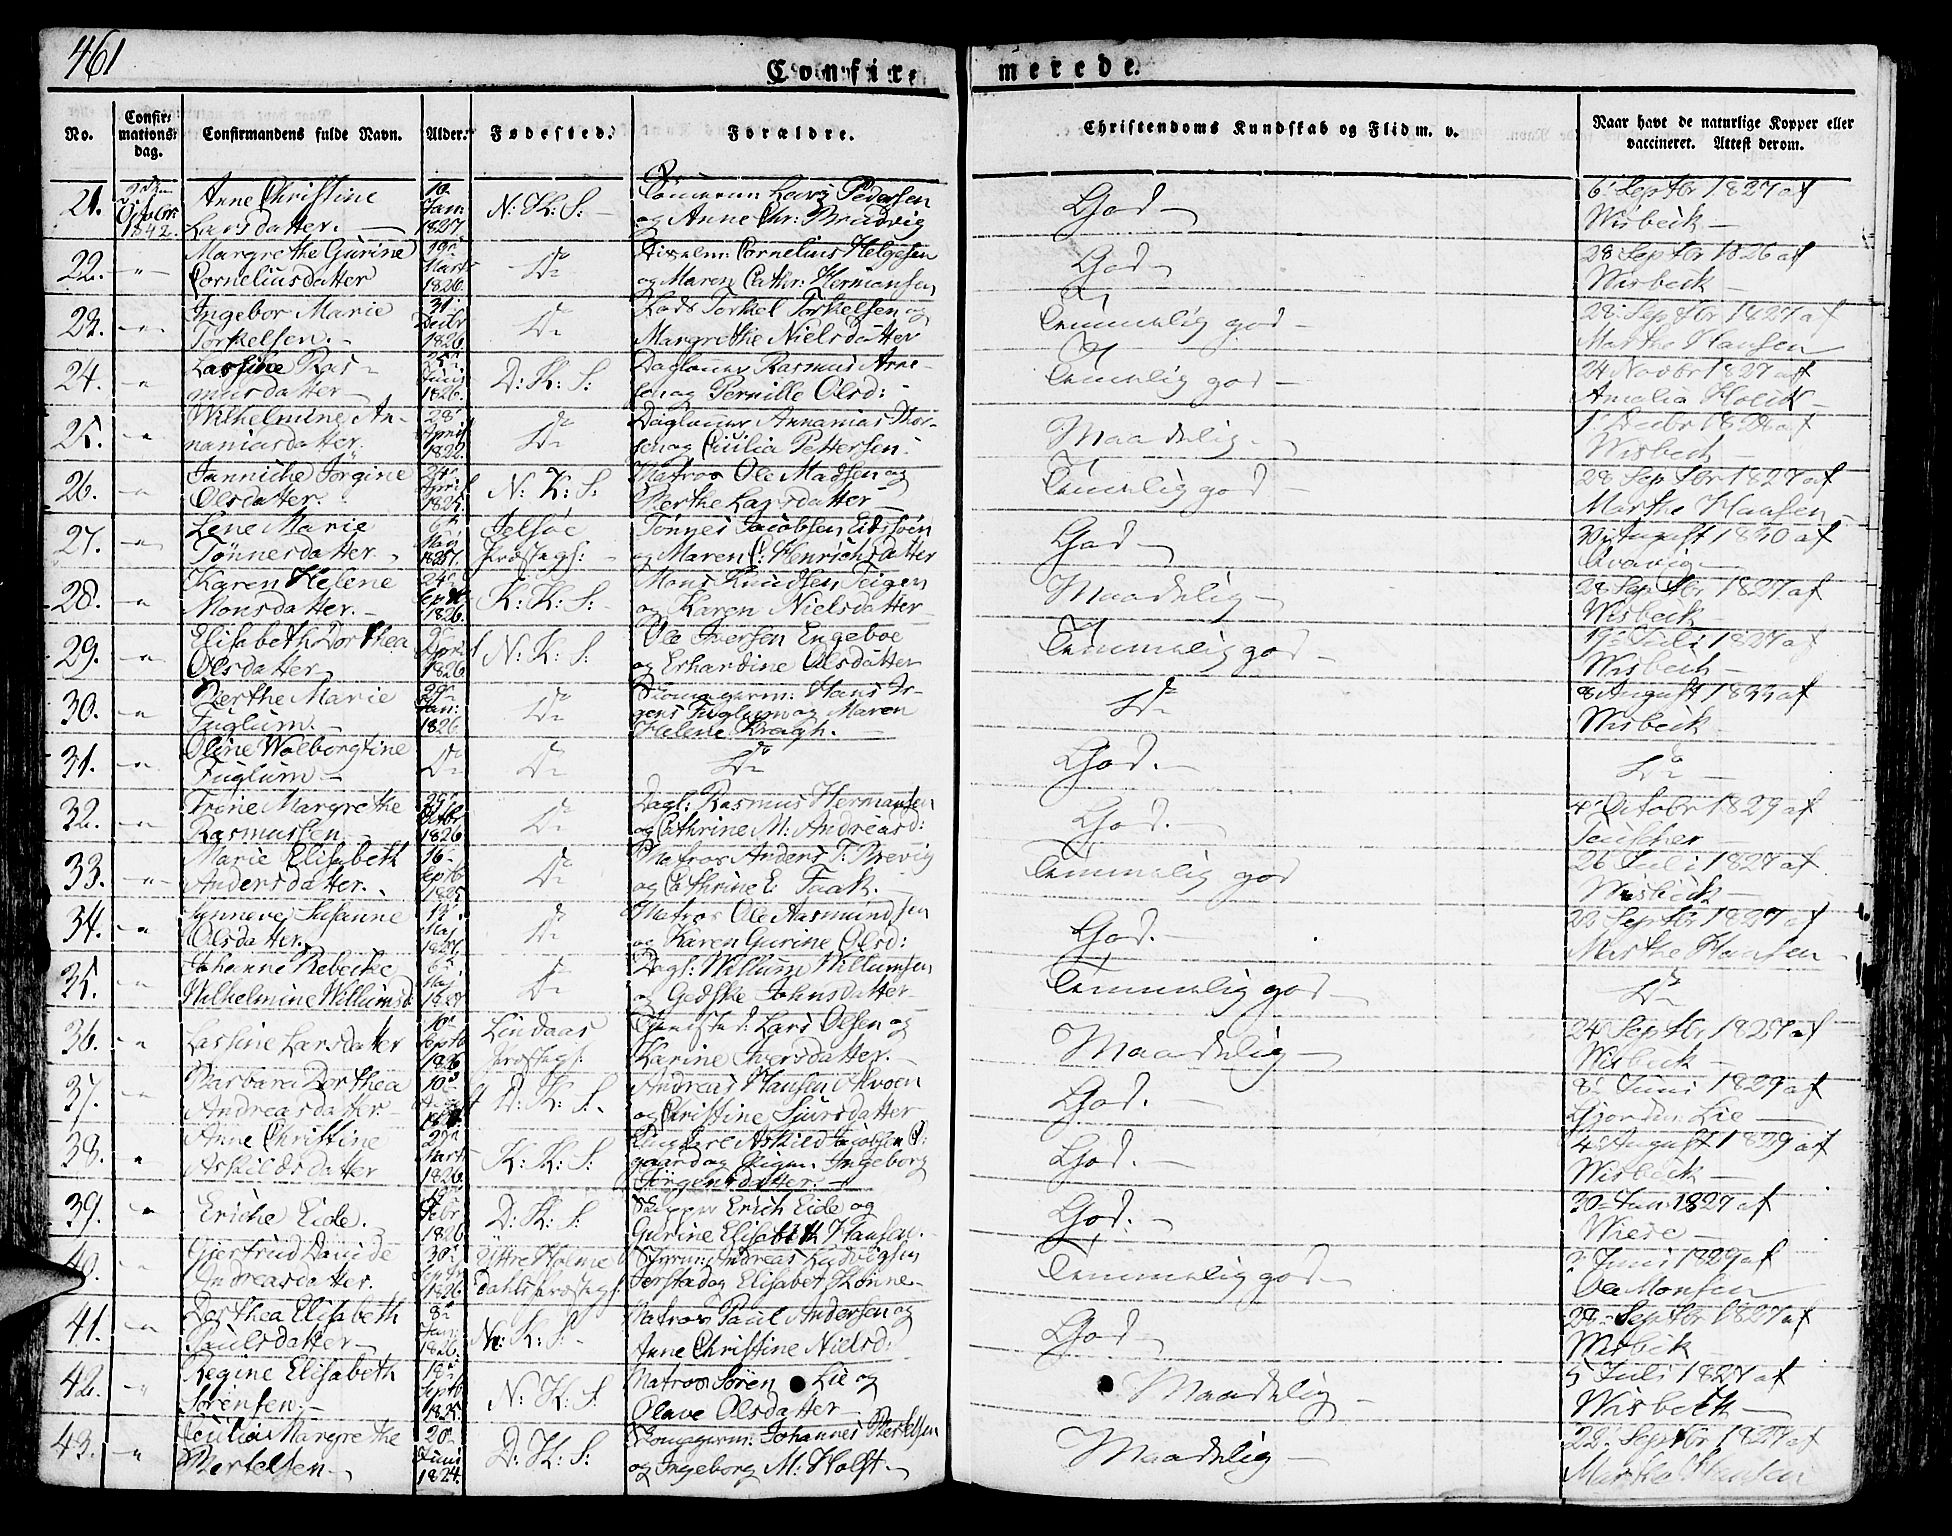 461
Confir, merede.
No. Confir: mations: dag. Confirmandens fulde Navn. Alder. Fødested. Forældre. Christendoms Kundskab og Flid m. v. Naar havt de naturlige Kopper eller vaccineret. Attest derom.
21. 2den Octobr: 1842. Anne Christine Larsdatter. — Jan: 1827 N: K: S: — Lars Pedersen og Anne Chr: Brudvig God — 6' Septbr 1827 af Wisbeck —
22. -"- Margrethe Gurine Corneliusdatter 19de Marts 1826 Do Cornelius Helgesen og Maren Cathr: Hermansen God — 28 Septbr 1826 af Wisbeck —
23. -"- Ingebor Marie Torkelsen. - 31. Decbr 1826 Do Lods Torkel Torkelsen og Margrethe Nielsdatter Temmelig god — 28: Septbr 1827 af Marthe Hansen
24. -"- Lassine Ras- musdatter — 25de Juni 1826. D: K: S: Rasmus Arne- sen og Pernille Olsd: Temmelig god — 24 Novbr 1827 af Amalia
25. -"- Wilhelmine An- naniasdatter. 28de April Do Annanias Thor- sen og Cicilia Pettersen Maadelig. — 1' Decbr 1826 af Wisbeck —
26. -"- Janniche Jørgine Olsdatter. 24de April 1825. N: K: S. Matros Ole Madsen og Berthe Larsdatter Temmelig god — 28 Septbr 1827 af Marthe Hansen
27. -"- Lene Marie Tønnesdatter. 6te Mai Jelsøe Præstegj: — Tønnes Jacobsen Eidsvøen og Maren C: Henrichsdatter God — 30 August 1830 af
28. -"- Karen Helene Monsdatter. — 24de Septbr 1826. K: K: S: - Mons Knudsen Teigen og Karen Nielsdatter Maadelig — 28 Septbr 1827 af Wisbeck —
29. -"- Elisabeth Dorthea Olsdatter — April 1826 N: K: S: Ole Iversen Engeboe og Erhardine Olsdatter Temmelig god — 19 Juli 1827 af Wisbeck —
30. -"- Berthe Marie Fuglum. — Jan: 1826 Do Hans Jr- gens Fuglum og Maren Helene Kragh. — Do 8 August 1833 af Wisbeck
31. -"- Oline Wolborgtine Fuglum — Do Do Do God. — Do —
32. -"- Trine Margrethe Rasmussen — Octbr 1826 Do Dagl: Rasmus Hermansen og Cathrine M: Andreasd: God. — 4' Octobr 1829 af
33. -"- Marie Elisabeth Andersdatter. 16- Septb 1825. Do Matros Anders T: Brevig og Cathrine E: Faak. — Temmelig god 26 Juli 1827 af Wisbeck —
34. -"- Synneve Susanne Olsdatter. Maj Do Matros Ole Aasmundsen og Karen Gurine Olsd: God. — 22 Septbr 1827 af Marthe Hansen —
35. -"- Johanne Rebecke Wilhelmine Willumsd: 6te Maj Do Dagl: Willum Willumsen og Gedske Johnsdatter — Temmelig god — Do
36. -"- Lassine Larsdatter 10de Septb 1826 Lindaas Præstegj: Lars Olsen og Karine Iversdatter. Maadelig — 24 Septbr 1827 af Wisbeck —
37. -"- Barbara Dorthea Andreasdatter — 10de D: K: S. — Andreas Hansen Alvoen og Christine Sjursdatter God. — 8' Juni 1829 af Lie —
38. -"- Anne Christine Askildsdatter 27de Marts 1826 K: K: S: Askild Jacobsen Ingeborg Jørgensdatter. — God. — 4 August 1829 af Wisbeck —
39. -"- Eriche Eide. Febr 1826 D: K: S: Erich Eide og Gurine Elisabeth Hansen. God. — 30 Juni 1827 af Wiese —
40. -"- Gjertrud Davide Andreasdatter. 30te Septbr 1826 Yttre Holme- dahls Præstegj: Andreas Ludvigsen Jerstad og Elisabet Skønne. Temmelig god — 2 Juni 1829 af Ole Monsen
41. -"- Dorthea Elisabeth Paulsdatter — 8de Jan 1826. N: K: S: — Matros Paul Andersen og Anne Christine Nielsd: God — 27 Septbr 1827 af Wisbeck —
42. -"- Regine Elisabeth Sørensen. — 18de Septb 1825. N: K: S. Matros Søren Lie og Olave Olsdatter — Maadelig — 5 Juli 1827 af Wisbeck —
43. -"- Cicilia Margrethe Bertelsen. — 20de Juni 1824. D: K: S: Johannes Bertelsen og Ingeborg M: Holst. — Maadelig — 22 Septbr 1827 af Marthe Hansen